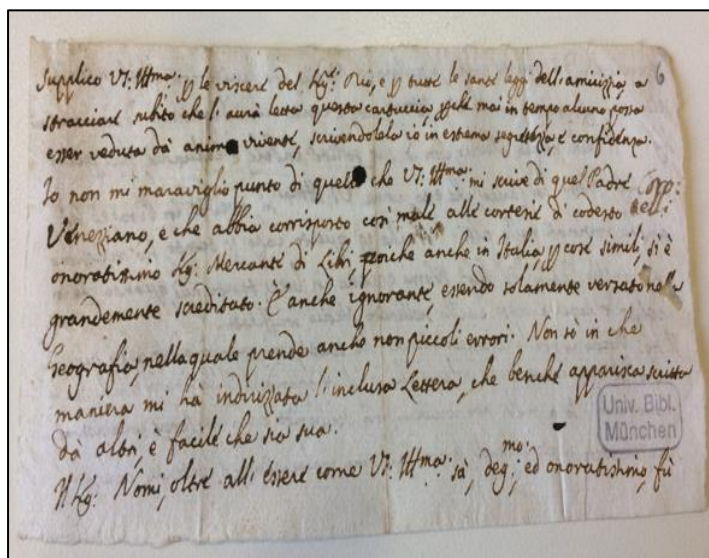 Supplico V.S. Ill.ma p le viscere del Sig.re Dio, e p tutte le sante leggi dell'amicizia, a
stracciare subito che l'aurà letta questa cartuccia, pche mai in tempo alcuno possa
esser veduta dà anima vivente, scrivendolela io in estrema segretezza, e confidenza.
Io non mi maraviglio punto di quello che V.S. Ill.ma mi scive di quel Padre
Veneziano, e che abbia corrisposto così male alle cortesie di codesto
onoratissimo Sig. Mercante di Libri, poiche anche in Italia, p cose simili, si è
grandemente screditato. È anche ignorante, essendo solamente versato nella
Geografia, nella quale prende anche non piccoli errori. Non sò in che
maniera mi hà indirizzata l'inclusa Lettera, che benche apparisca scritta
dà altri, e facile che sia sua.
Il Sig. Nomi, oltre all'essere come V.S. Ill.ma sà, deg.mo, ed onoratissimo, fù
6
Univ. Bibl.
München